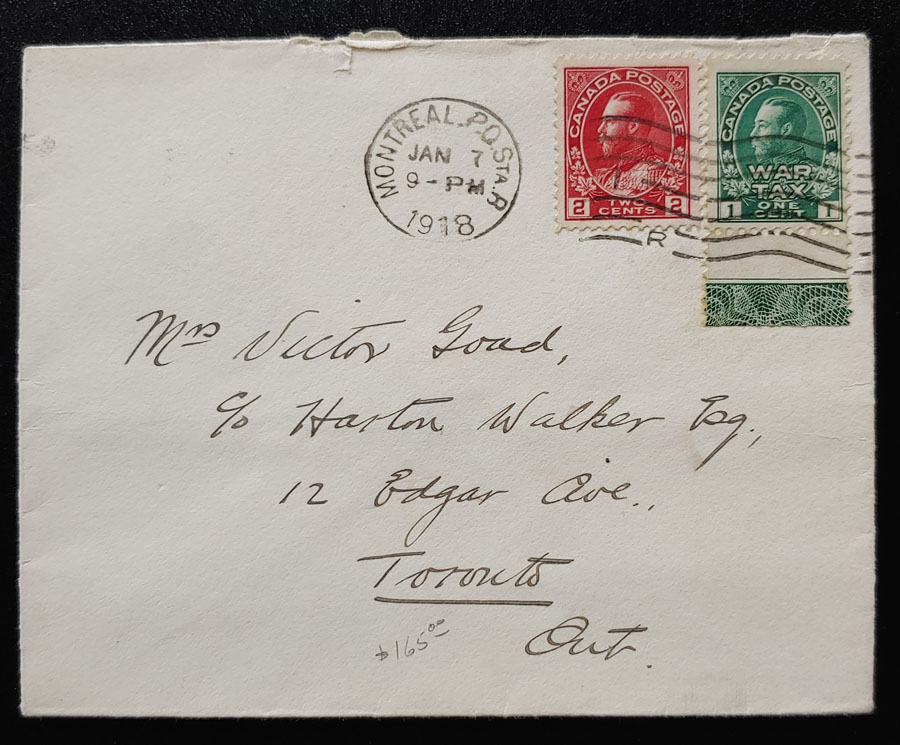 MONTREAL. P.Q. STA. R
JAN 7
9 - PM
1918
CANADA POSTAGE
2 TWO CENTS 2
CANADA POSTAGE
WAR
TAX
1 ONE CENT 1
R
Mrs Victor Goad,
c/o Harton Walker Esq.,
12 Edgar Ave.,
Toronto
Ont.
$165.00